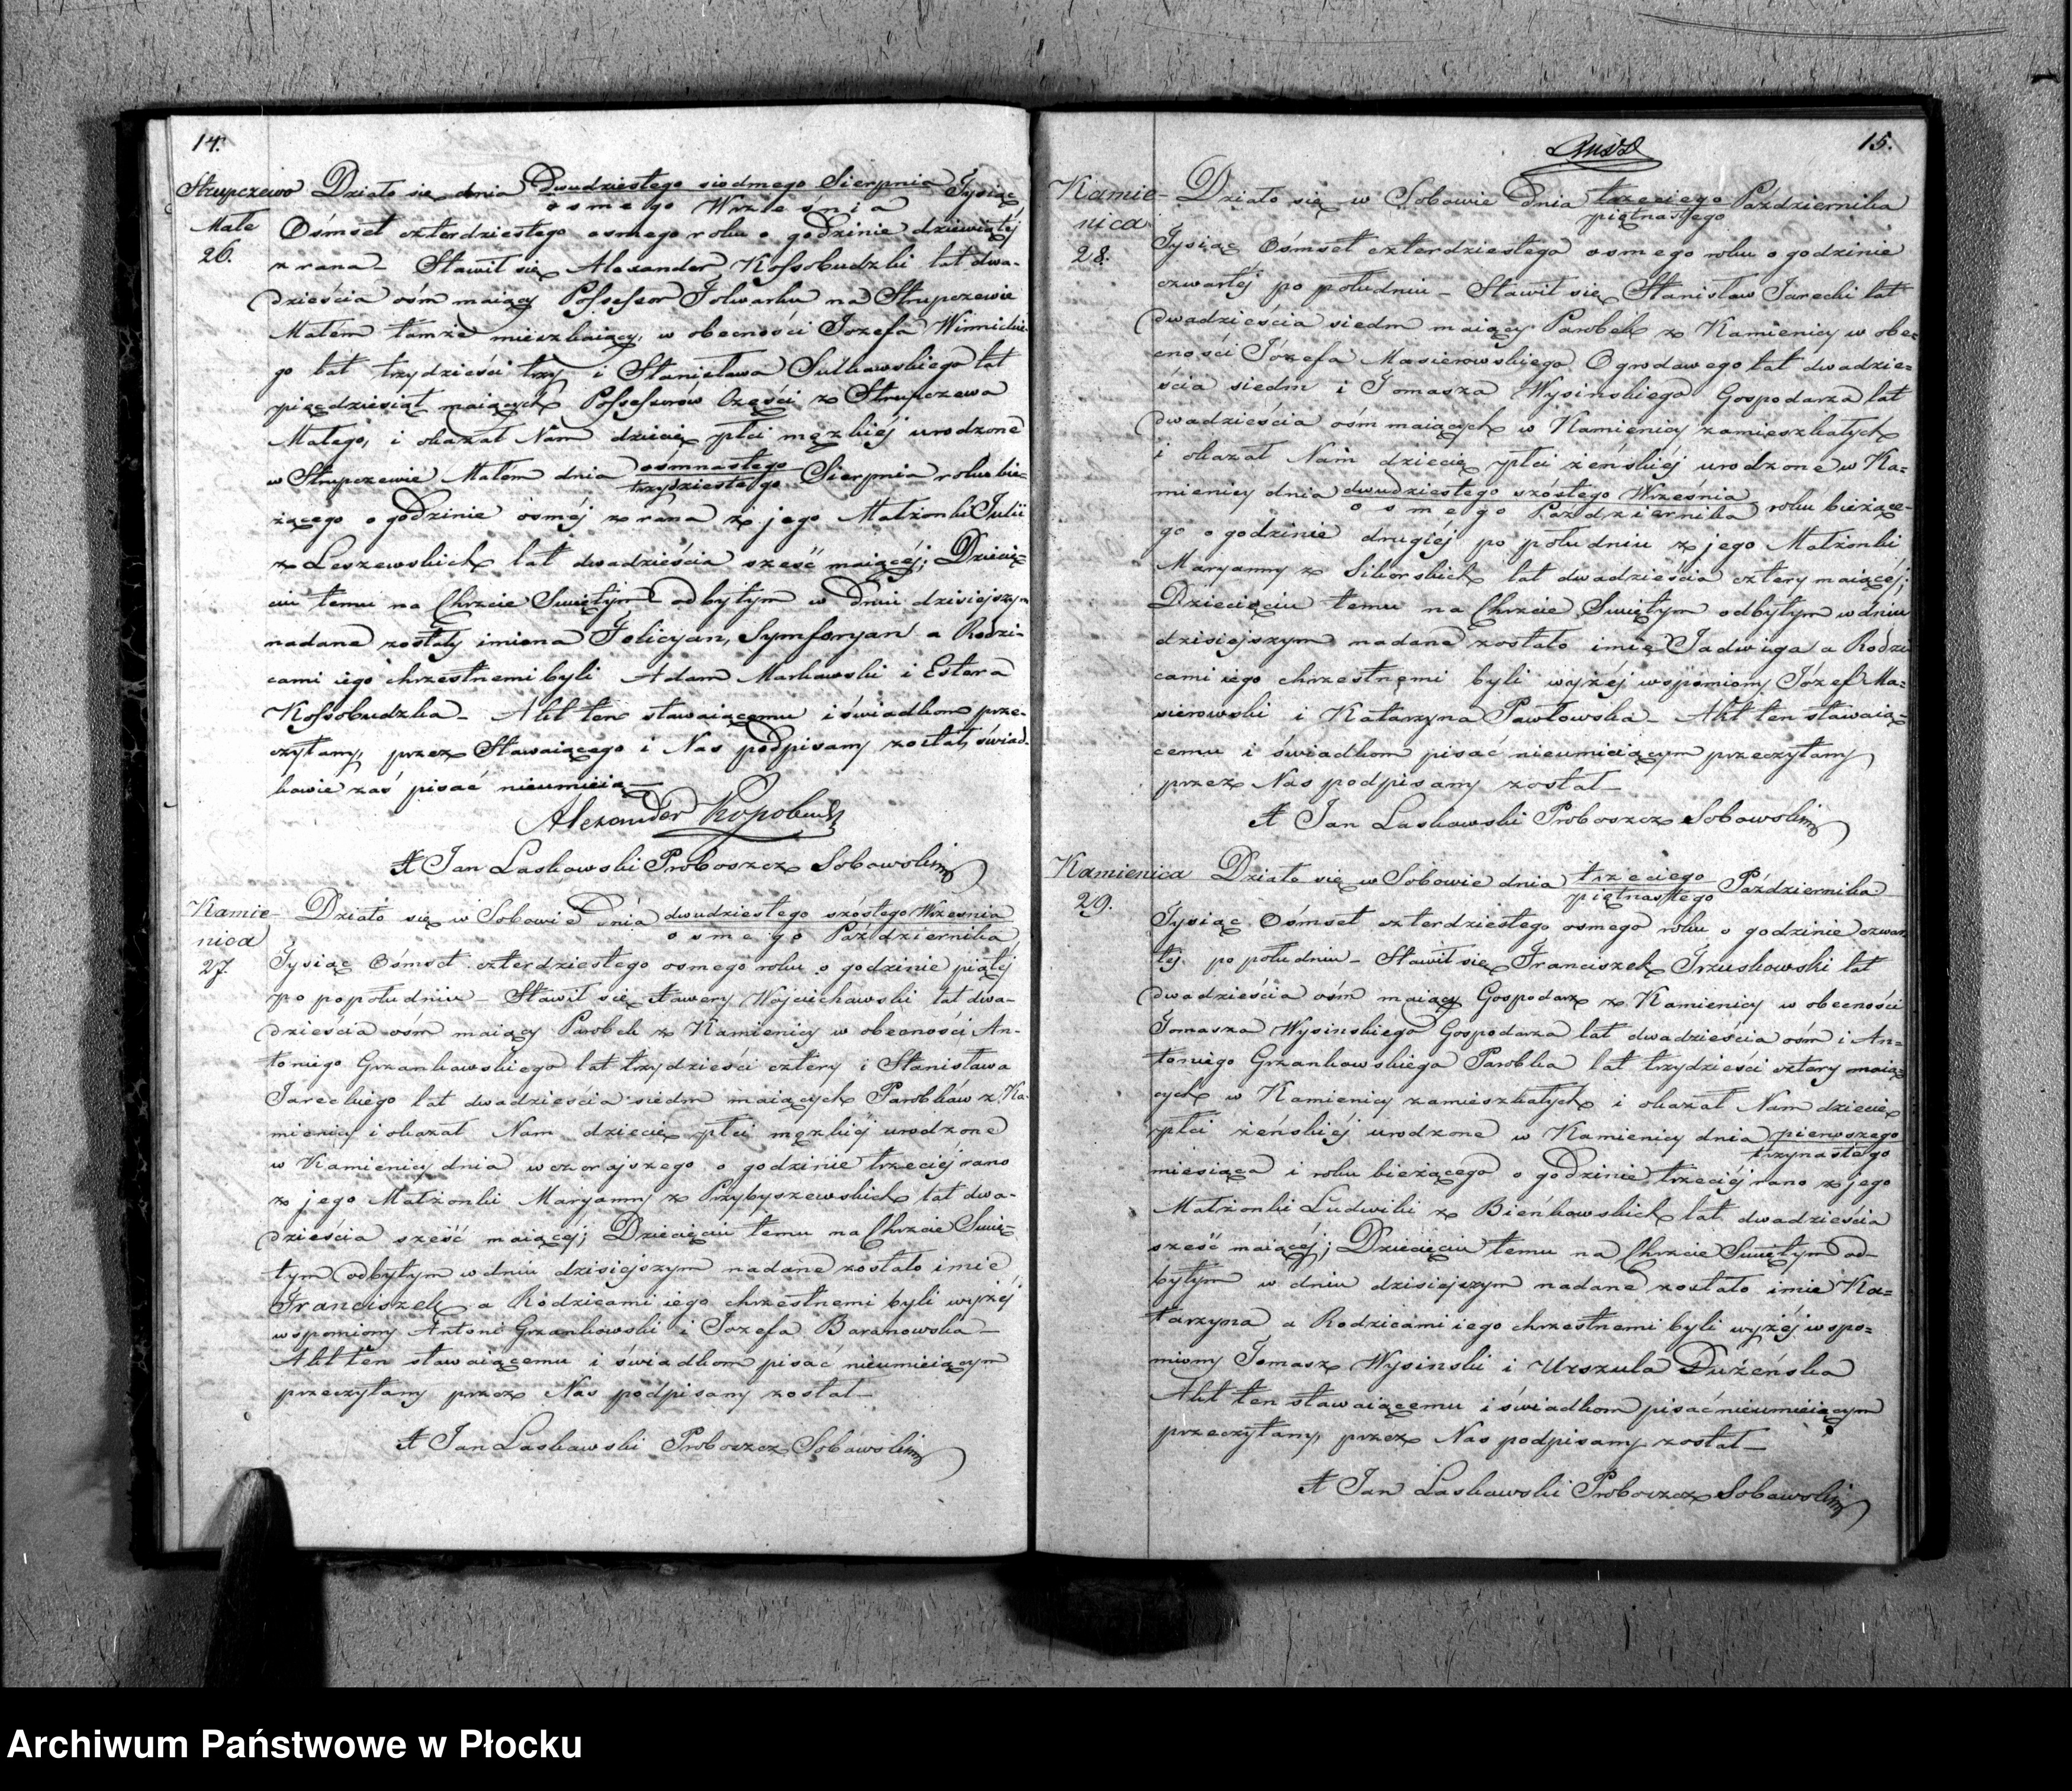 14.
Strupczewo
Małe
26.
Działo się dnia Dwudziestego siodmego Sierpnia Tysiąc
osmego Września
Ośmset czterdziestego osmego roku o godzinie dziewiątéj
z rana – Stawił się Alexander Kossobudzki lat dwa-
dzieścia ośm maiący Possessor Folwarku na Strupczewie
Małem tamże mieszkaiący, w obecności Jozefa Winnickie-
go lat trzydzieści trzy i Stanisława Sutkowskiego lat
pięćdziesiąt maiących Possessorów Części z Strupczewa
Małego, i okazał Nam dziecię płci męzkiéj urodzone
w Strupczewie Małém dnia osmnastego Sierpnia roku bie-
trzydziestego
żącego o godzinie ósméj z rana z jego Małżonki Julii
z Leszewskich lat dwadzieścia sześć maiącéj; Dziecię-
ciu temu na Chrzcie Swiętym odbytym w dniu dzisiejszym
nadane zostały imiona Felicyan, Symforyan a Rodzi-
cami iego chrzestnemi byli Adam Markowski i Estera
Kossobudzka – Akt ten stawaiącemu i świadkom prze-
czytany, przez Stawaiącego i Nas podpisany został, świad-
kowie zaś pisać nieumieią –
Alexander
X Jan Laskowski Proboszcz Sobowski
Kamie-
nica
27.
Działo się w Sobowie dnia dwudziestego szóstego Wrzesnia
osmego Października
Tysiąc Ośmset czterdziestego osmego roku o godzinie piątéj
po popołudniu – Stawił się Xawery Wojciechowski lat dwa-
dzieścia ośm maiący Parobek z Kamienicy w obecności An-
toniego Grzankowskiego lat trzydzieści cztery i Stanisława
Jareckiego lat dwadzieścia siedm maiących Parobków z Ka-
mienicy i okazał Nam dziecię płci męzkiéj urodzone
w Kamienicy dnia wczorajszego o godzinie trzeciéj rano
z jego Małżonki Maryanny z Przybyszewskich lat dwa-
dzieścia sześć maiącéj; Dziecięciu temu na Chrzcie Swię-
tym odbytym w dniu dzisiejszym nadane zostało imie
Franciszek a Rodzicami iego chrzestnemi byli wyżéj
wspomiony Antoni Grzankowski i Jozefa Baranowska –
Akt ten stawaiącemu i świadkom pisać nieumieiącym
przeczytany przez Nas podpisany został –
X Jan Laskowski Proboszcz Sobowski
15.
Kamie-
nica
28.
Działo się w Sobowie dnia trzeciego Października
piętnastego
Tysiąc Ośmset czterdziestego osmego roku o godzinie
czwartéj po południu – Stawił się Stanisław Jarecki lat
dwadzieścia siedm maiący Parobek z Kamienicy w obe-
cności Józefa Masierowskiego Ogrodowego lat dwadzie-
ścia siedm i Tomasza Wysinskiego Gospodarza lat
dwadzieścia ośm maiących w Kamienicy zamieszkałych
i okazał Nam dziecię płci żeńskiéj urodzone w Ka-
mienicy dnia dwudziestego szóstego Września roku bieżące-
osmego Października
go o godzinie drugiéj po południu z jego Małżonki
Maryanny z Sikorskich lat dwadzieścia cztery maiącéj;
Dziecięciu temu na Chrzcie Swiętym odbytym w dniu
dzisiejszym nadane zostało imię Jadwiga a Rodzi
cami iego chrzestnemi byli wyżéj wspomiony Józef Ma-
sierowski i Katarzyna Pawłowska – Akt ten stawaią-
cemu i świadkom pisać nieumieiącym przeczytany
przez Nas podpisany został –
X Jan Laskowski Proboszcz Sobowski
Kamienica
29.
Działo się w Sobowie dnia trzeciego Października
piętnastego
Tysiąc Ośmset czterdziestego osmego roku o godzinie czwar
téj po południu – Stawił się Franciszek Trzuskowski lat
dwadzieścia ośm maiący Gospodarz z Kamienicy w obecności
Tomasza Wysinskiego Gospodarza lat dwadzieścia ośm i An-
toniego Grzankowskiego Parobka lat trzydzieści cztery maią-
cych w Kamienicy zamieszkałych i okazał Nam dziecię
płci żeńskiéj urodzone w Kamienicy dnia pierwszego
trzynastego
miesiąca i roku bieżącego o godzinie trzeciéj rano z jego
Małżonki Ludwiki z Bieńkowskich lat dwadzieścia
sześć maiącéj; Dziecięciu temu na Chrzcie Swiętym od-
bytym w dniu dzisiejszym nadane zostało imie Ka-
tarzyna a Rodzicami iego chrzestnemi byli wyżéj wspo-
miony Tomasz Wysinski i Urszula Dużeńska
Akt ten stawaiącemu i świadkom pisać nieumieiącym
przeczytany, przez Nas podpisany został –
X Jan Laskowski Proboszcz Sobowski
Archiwum Państwowe w Płocku